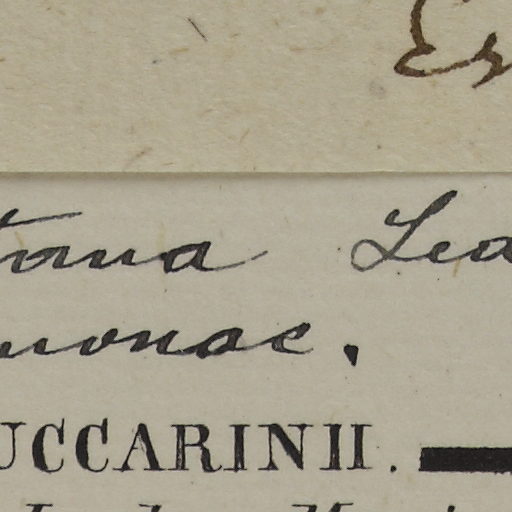 Er
tana Lea
monac.
UCCARINII.